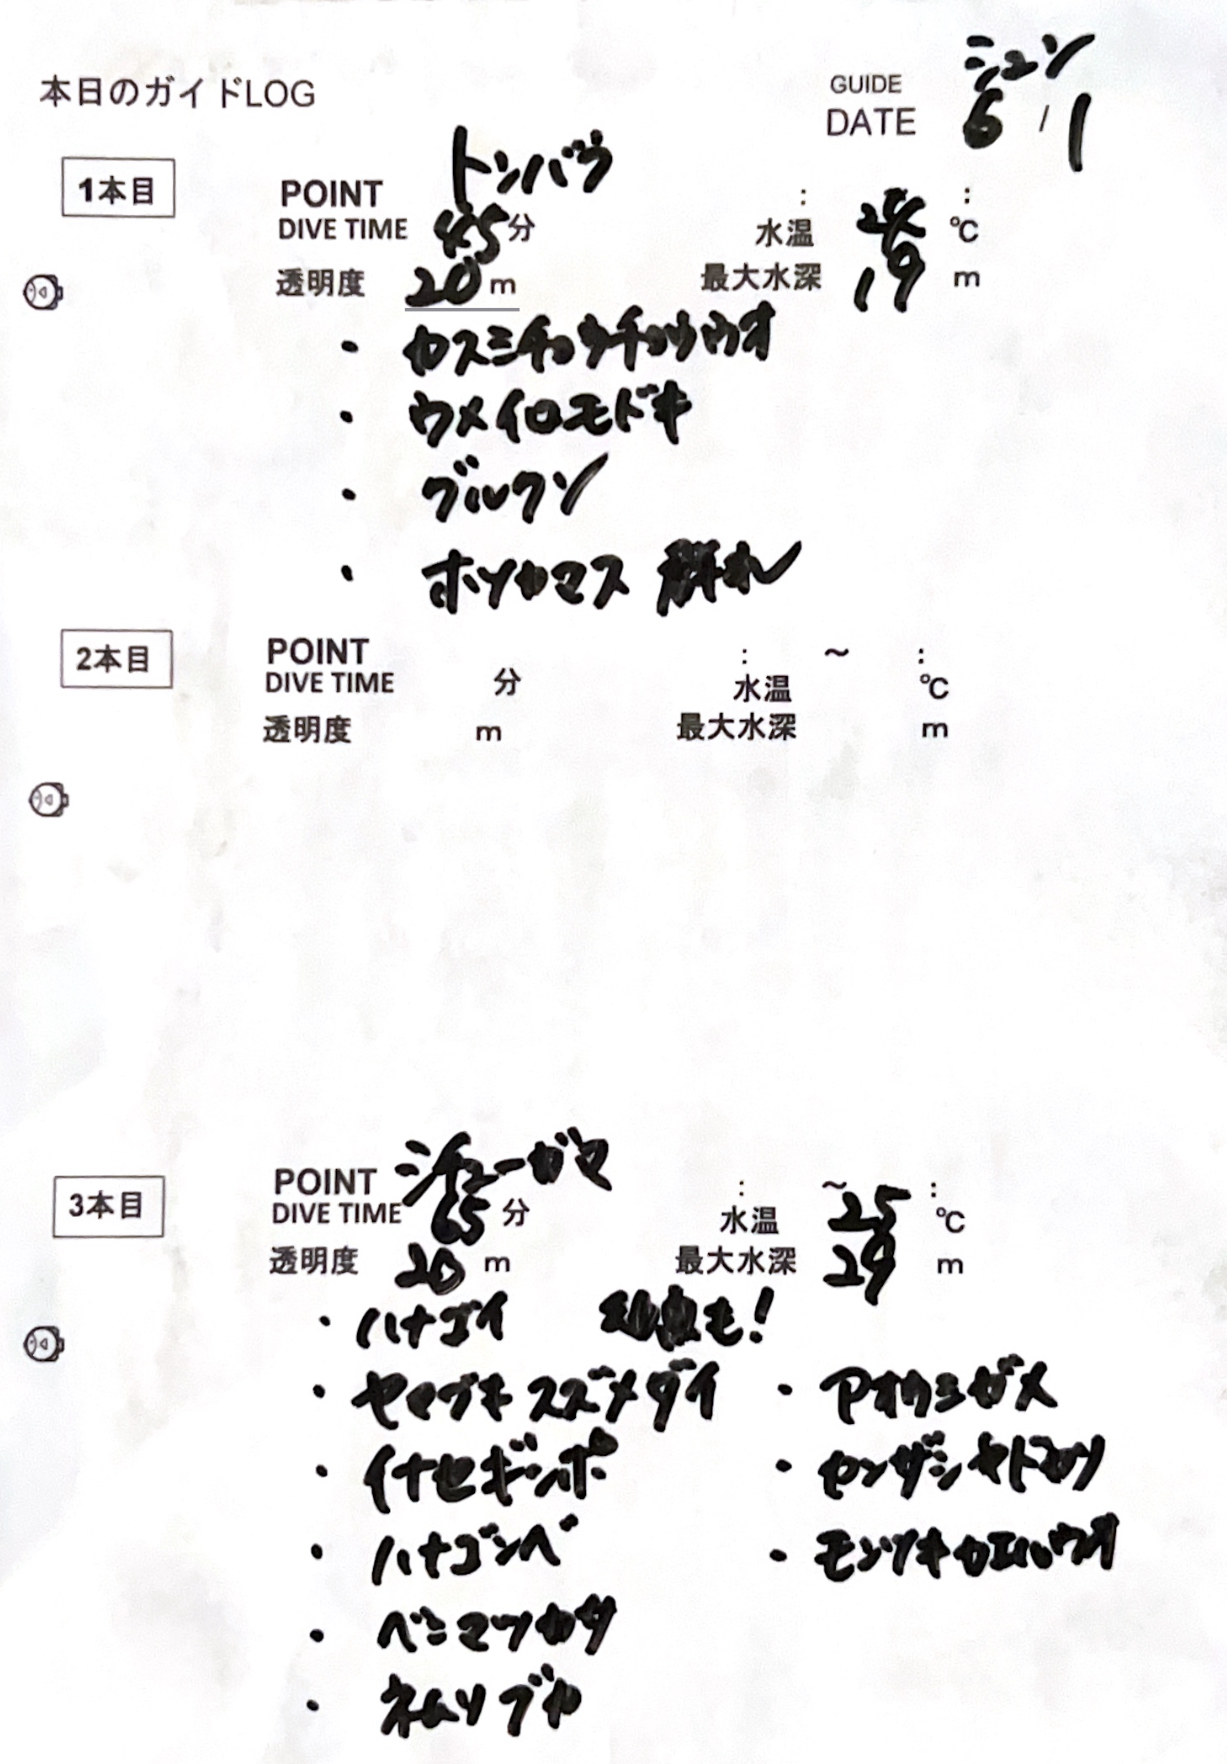 本日のガイドLOG
GUIDE シュン
DATE 6 / 1
1本目
POINT トンバラ : :
DIVE TIME 45分 水温 ℃
透明度 20m 最大水深 19 m
・カスミチョウチョウウオ
・ウメイロモドキ
・グルクン
・ホソカマス 群れ
2本目
POINT : ～ :
DIVE TIME 分 水温 ℃
透明度 m 最大水深 m
3本目
POINT シチューガマ : ～ :
DIVE TIME 65分 水温 25 ℃
透明度 20 m 最大水深 29 m
・ハナゴイ 幼魚も!
・ヤマブキスズメダイ ・アオウミガメ
・イナセギンポ ・センザンヤドカリ
・ハナゴンベ ・モンツキカエルウオ
・ベニマツカサ
・ネムリブカ